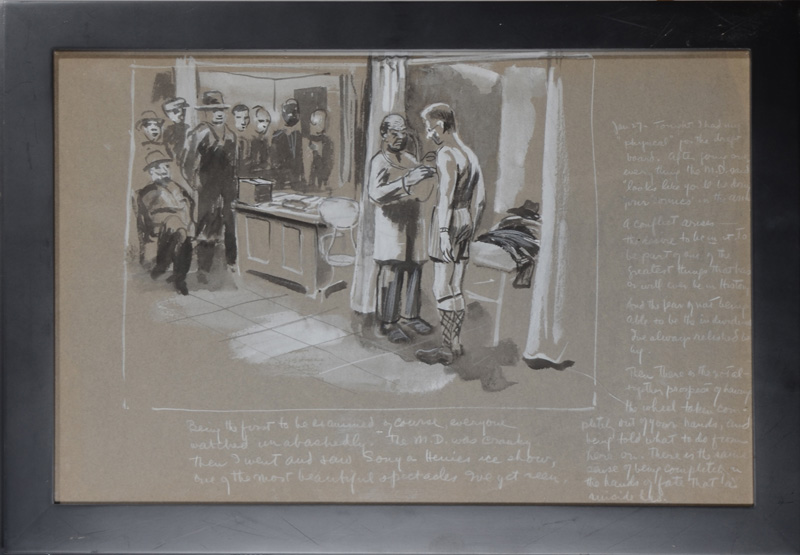 Being the first to be examined of course, everyone
watched unabashedly. The M.D. was
Then I went and saw Songa Henies ice show,
one of the most beautiful spectacles I've yet seen.
Jan 27. Tonight I had my
"physical" for the draft
board. After going me
over, the M.D. said
"Looks like you'll be doing
your comics in the
A conflict arises
the desire to be in it To
be part of one of the
greatest things that has
or will ever be in History
And the fear of not being
able to be the individual
I've always relished
by
Then There is the
prospect of having
the wheel taken com-
pletely out of your hands, and
being told what to do from
here on. There is the same
cause of being completely in
the hands of fate that is in